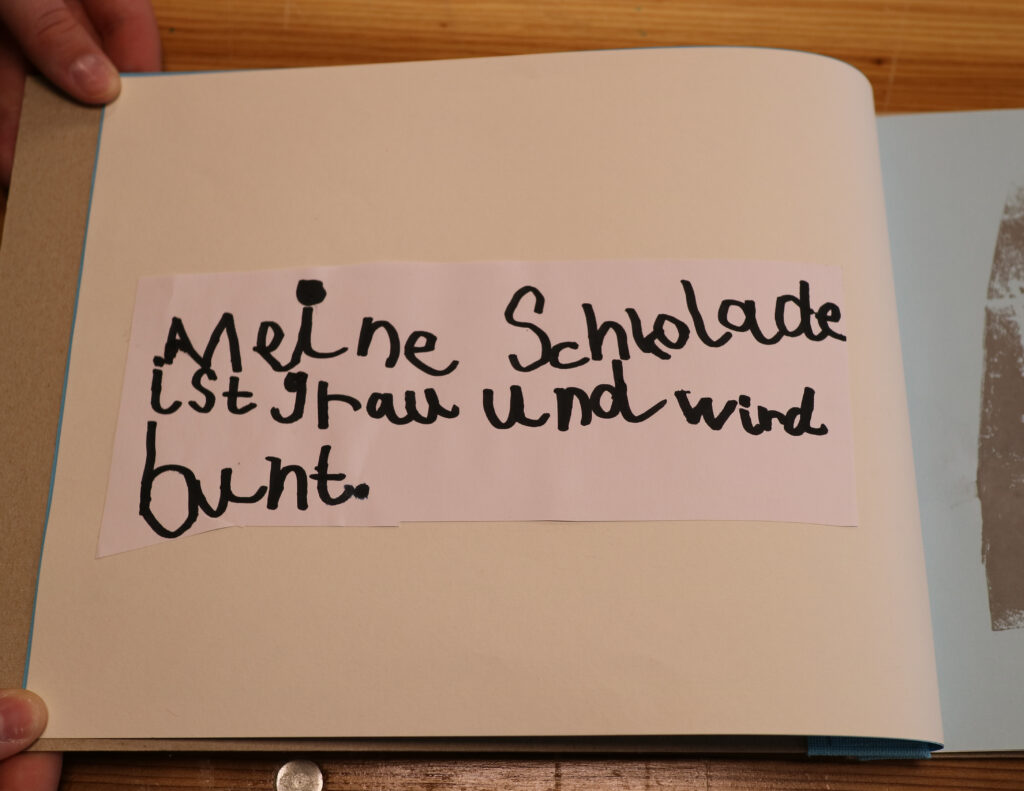 Meine Schkolade
ist grau und wird
bunt.